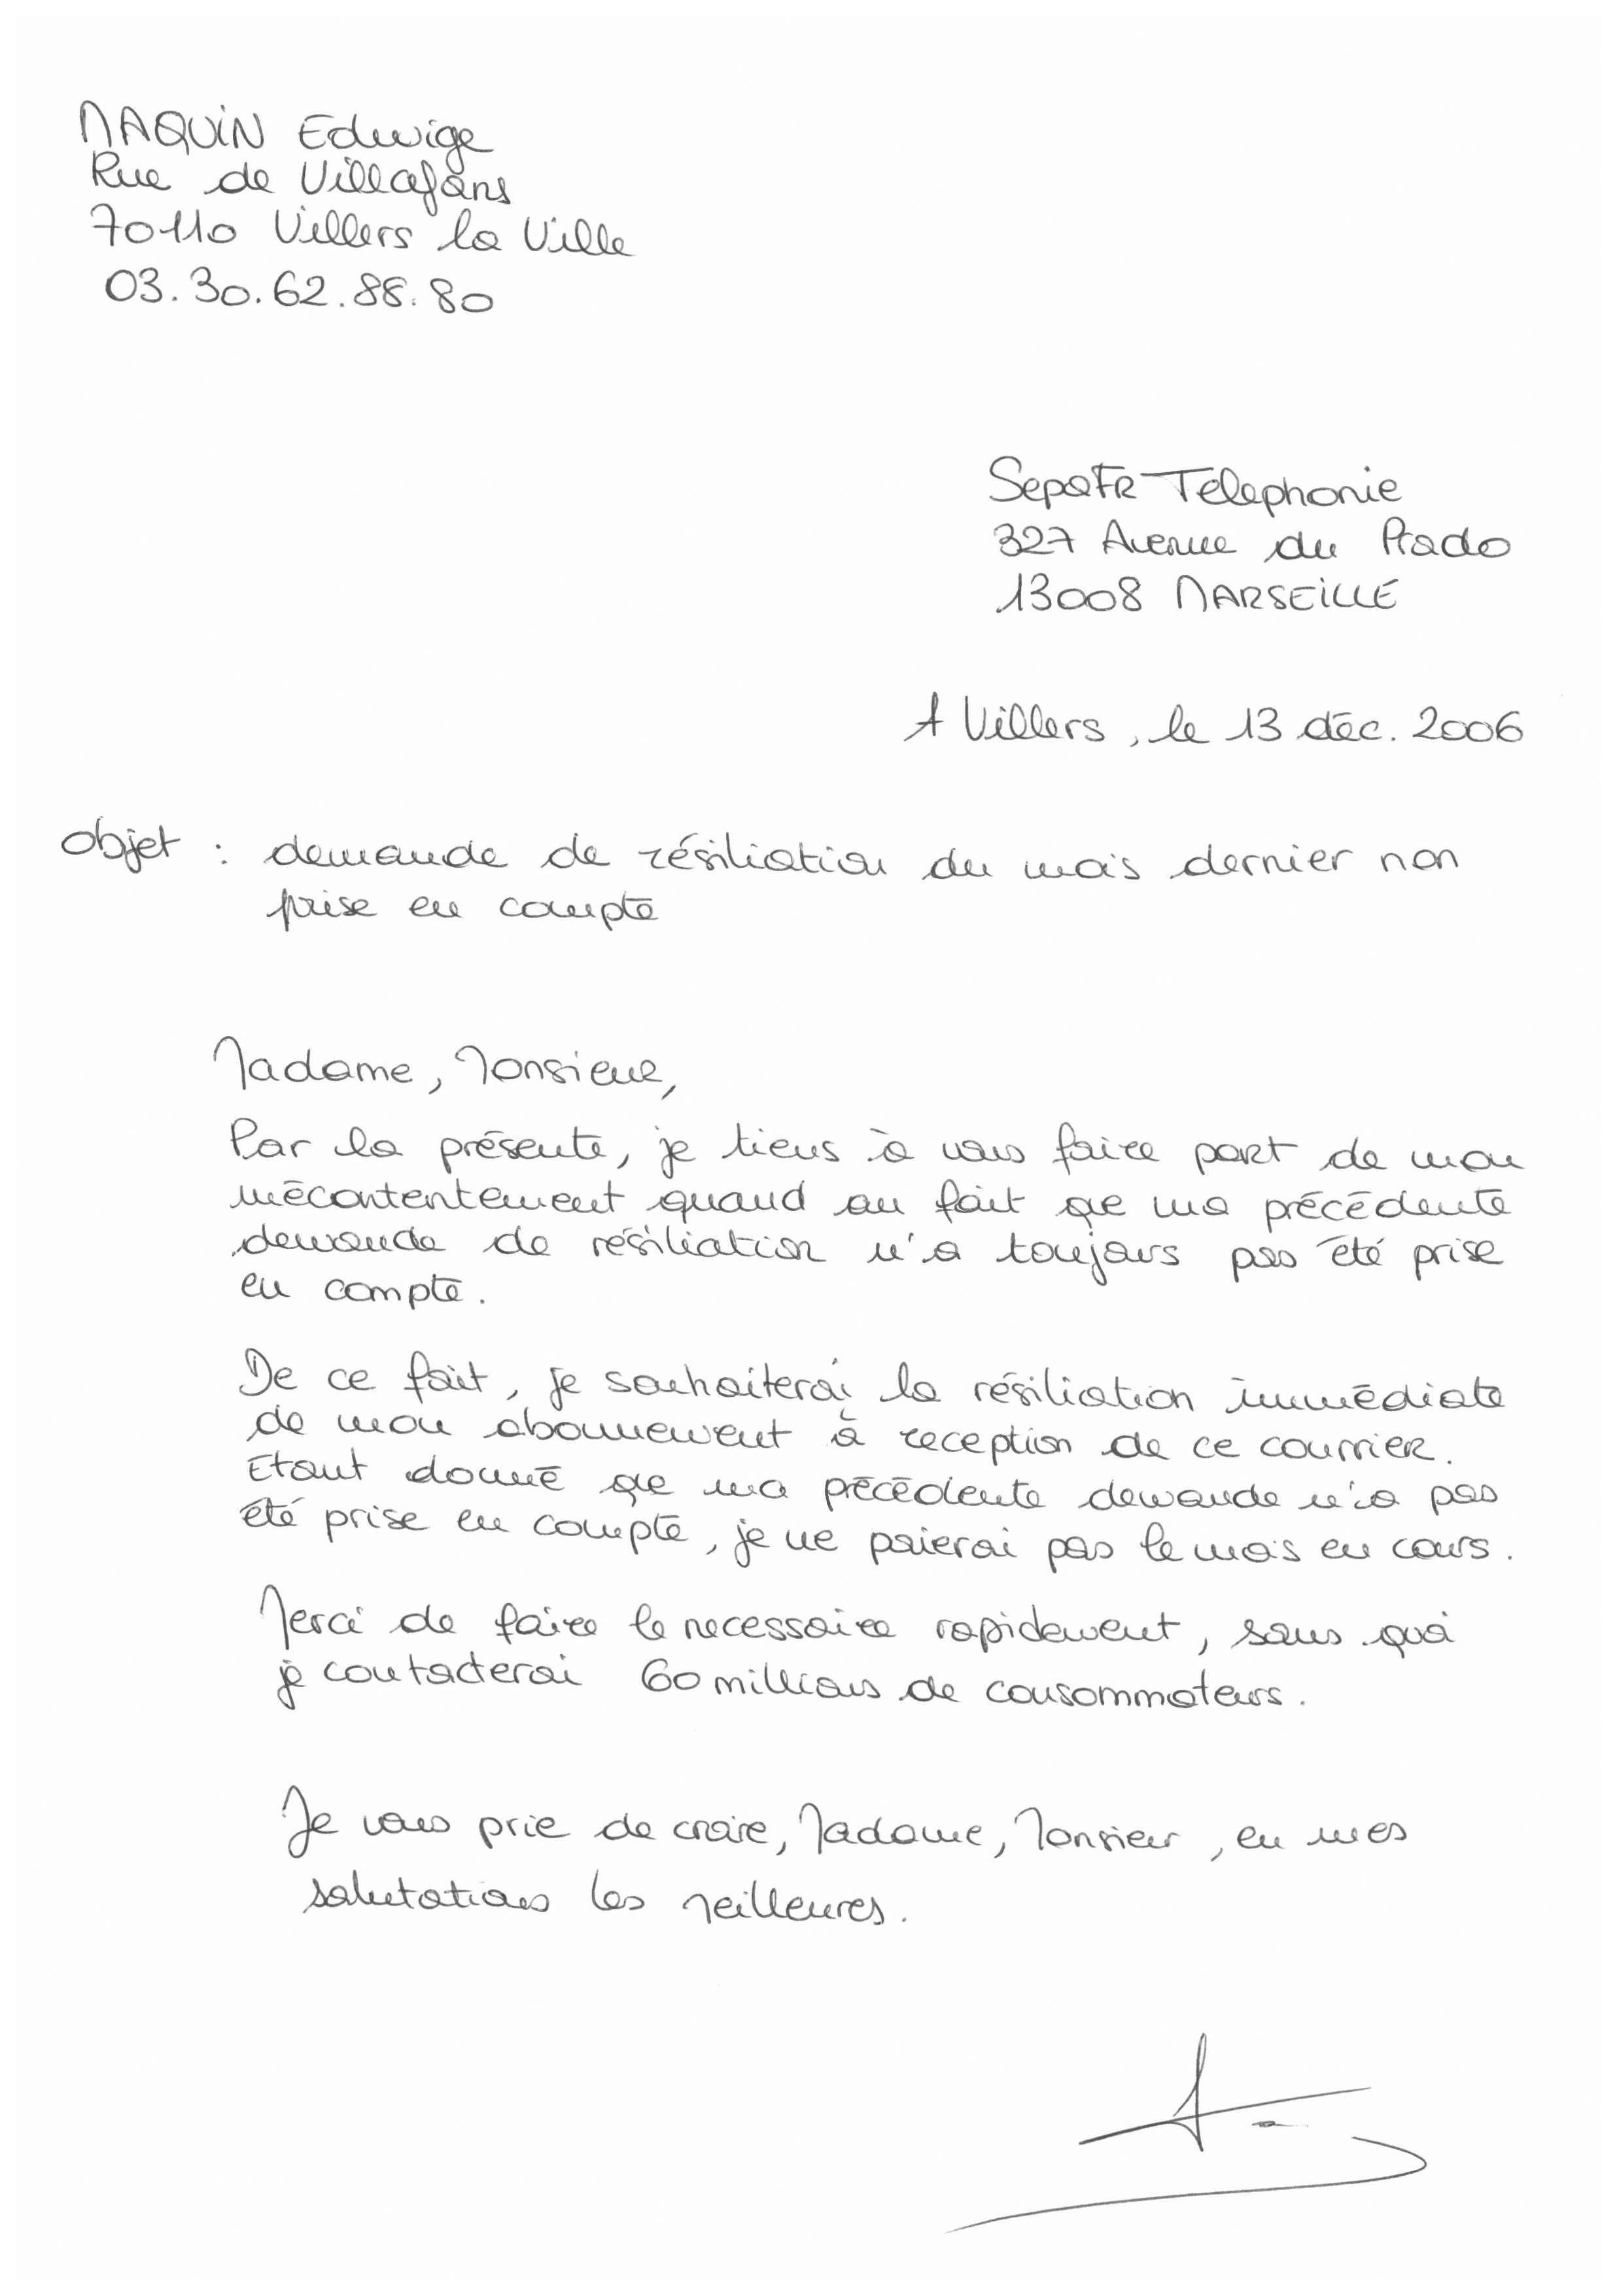 MAQUIN Edwige
Rue de Villafans
70110 Villers la Ville
03.30.62.88.80
SepaFR Telephonie
327 Avenue du Prado
13008 MARSEILLE
A Villers, le 13 déc. 2006
Objet : demande de résiliation du mois dernier non
prise en compte
Madame, Monsieur,
Par la présente, je tiens à vous faire part de mon
mécontentement quand au fait que ma précédente
demande de résiliation n'a toujours pas été prise
en compte.
De ce fait, je souhaiterai la résiliation immédiate
de mon abonnement à reception de ce courrier.
Etant donné que ma précédente demande n'a pas
été prise en compte, je ne paierai pas le mois en cours.
Merci de faire le necessaire rapidement, sans quoi
je contacterai 60 millions de consommateurs.
Je vous prie de croire, Madame, Monsieur, en mes
salutations les meilleures.